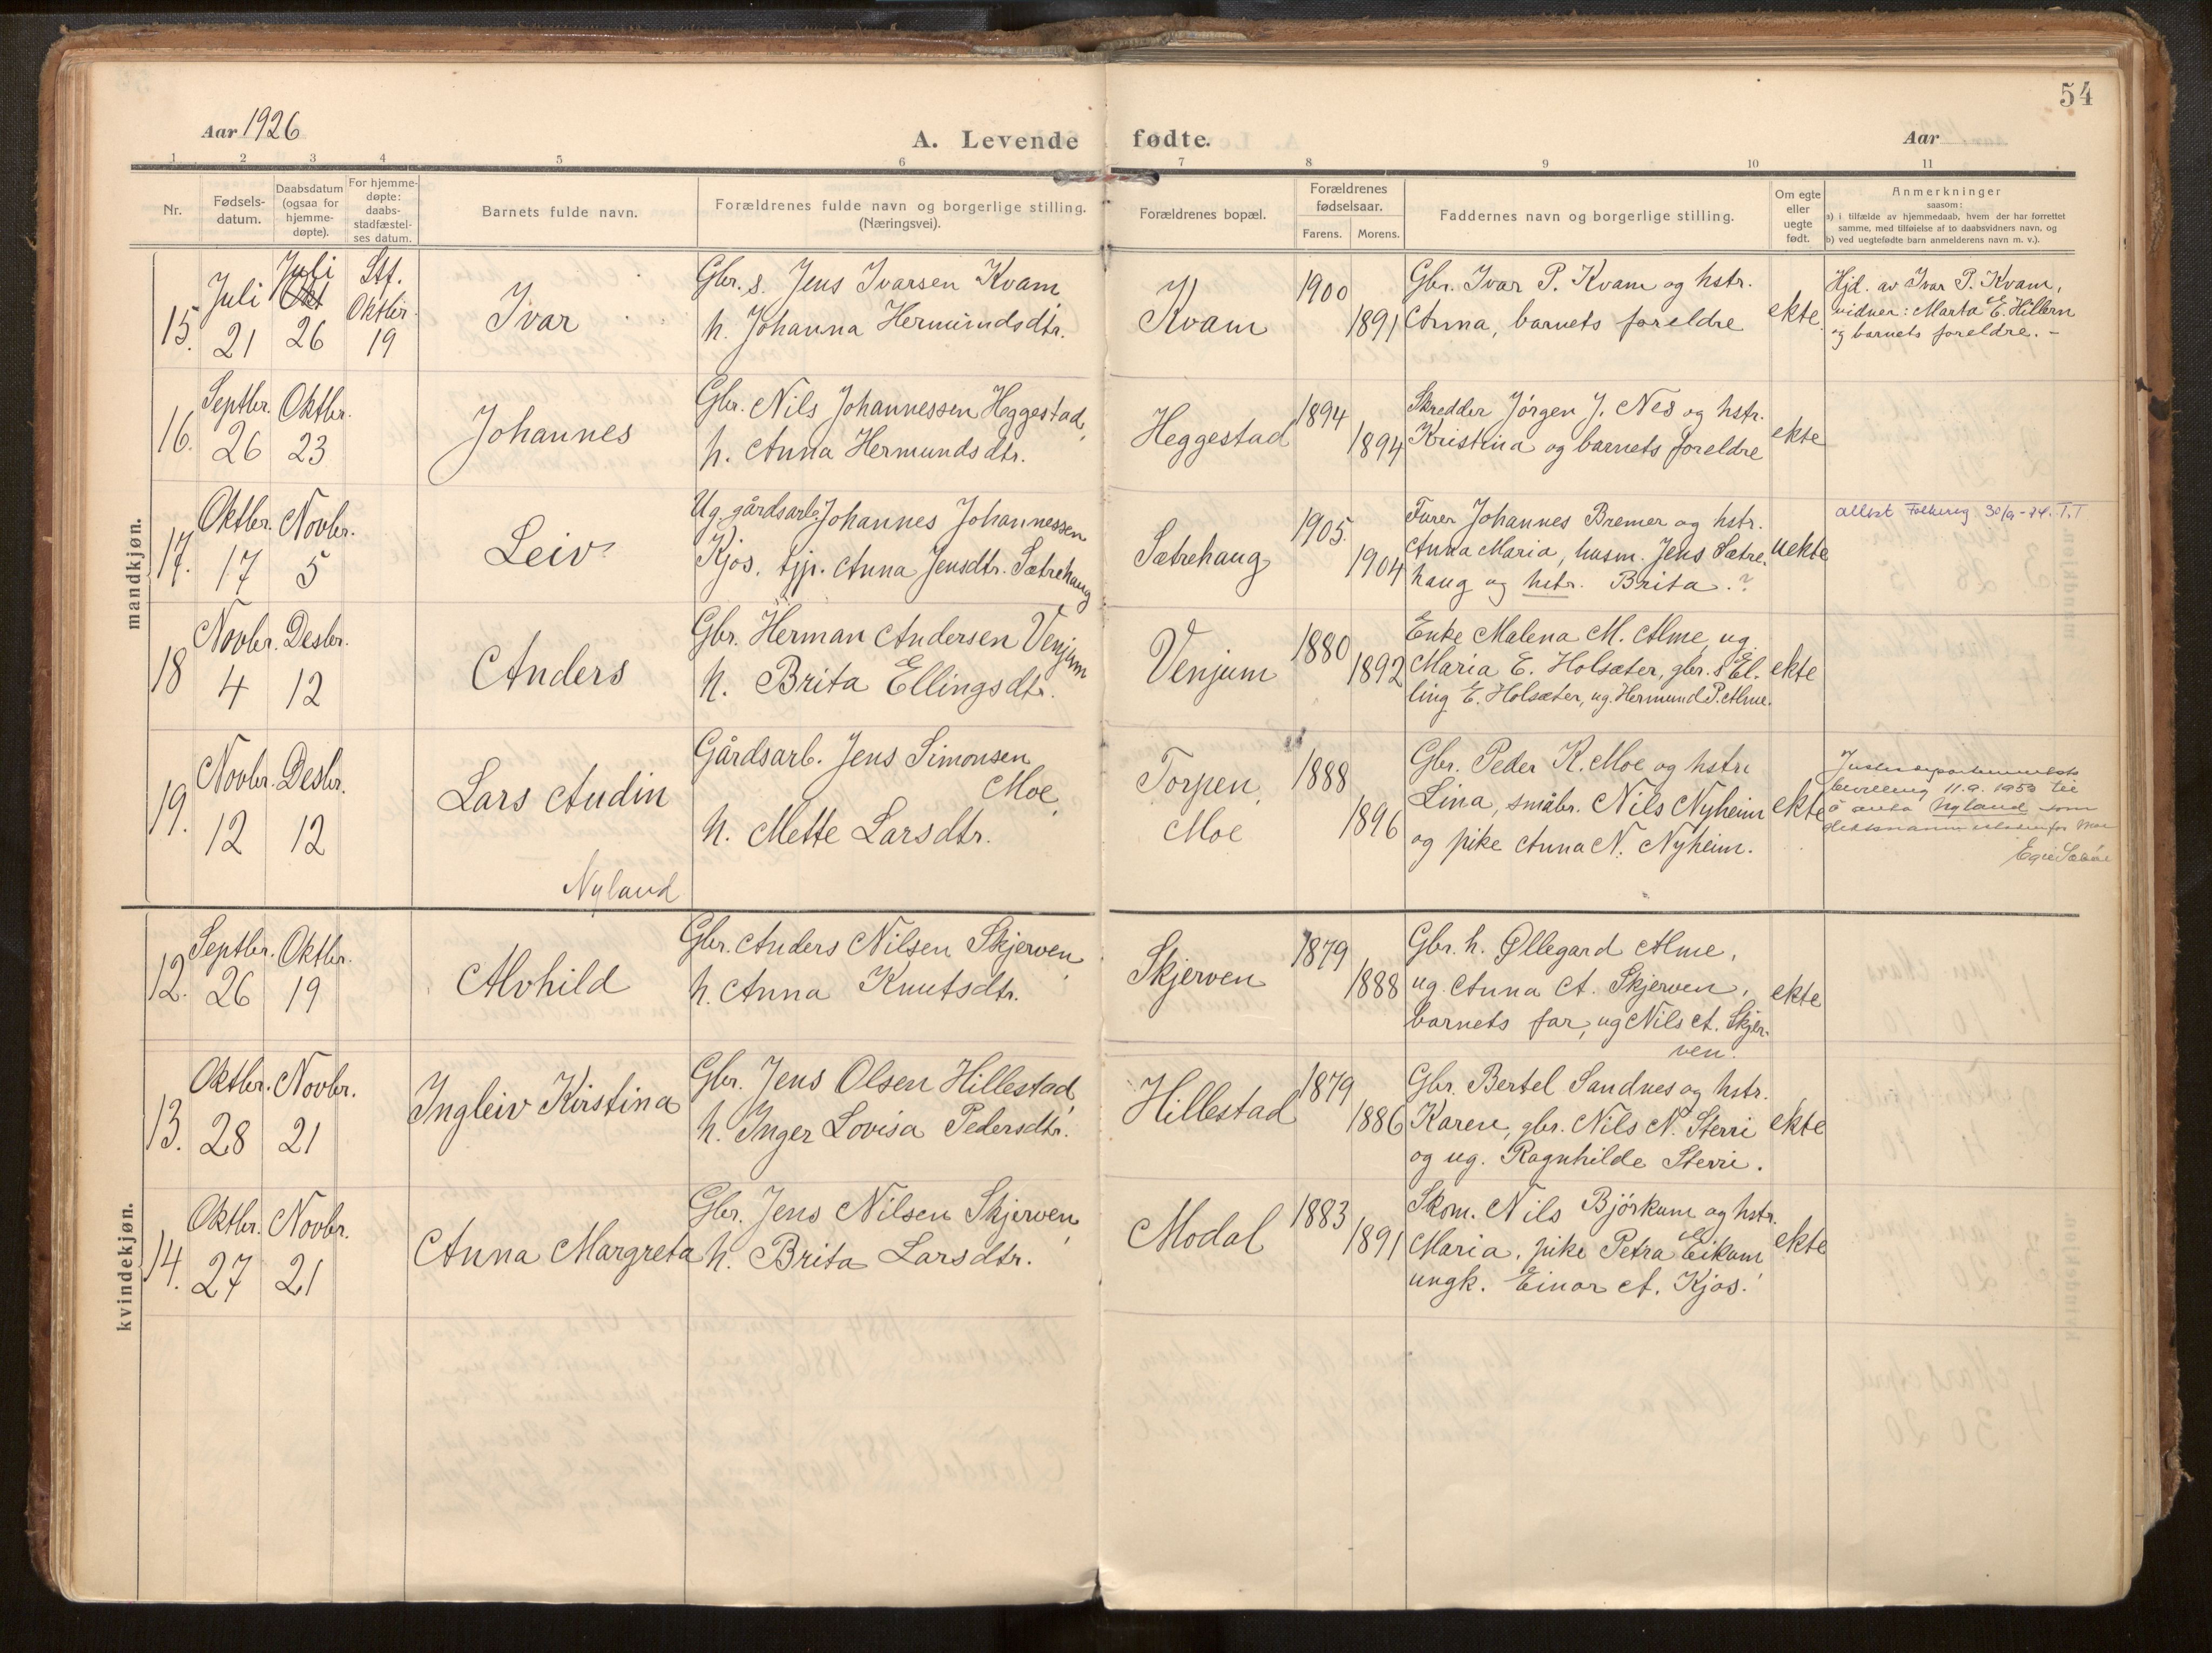 54
Aar 1926
A. Levende fødte.
Aar
1 2 3 4 5 6 7 8 9 10 11
Nr.
Fødsels-
datum.
Daabsdatum
(ogsaa for
hjemme-
døpte).
For hjemme-
døpte:
daabs-
stadfæstel-
ses datum.
Barnets fulde navn.
Forældrenes fulde navn og borgerlige stilling.
(Næringsvei).
Forældrenes bopæl.
Forældrenes
fødselsaar.
Farens. Morens.
Faddernes navn og borgerlige stilling.
Om egte
eller
uegte
født.
Anmerkninger
saasom:
a) i tilfælde av hjemmedaab, hvem der har forrettet
samme, med tilføielse av to daabsvidners navn, og
b) ved uegtefødte barn anmelderens navn m. v.).
mandkjøn.
15.
Juli
21
Juli
Okt
26
Stf.
Oktbr.
19
Ivar
Gbr. s. Jens Ivarsen Kvam,
h. Johanna Hermundsdtr.
Kvam
1900
1891
Gbr. Ivar P. Kvam og hstr.
Anna, barnets foreldre
ekte.
Hjd. av Ivar P. Kvam,
vidner: Marta E. Hillern
og barnets foreldre. -
16.
Septbr.
26
Oktbr.
23
Johannes
Gbr. Nils Johannessen Heggestad,
h. Anna Hermundsdtr.
Heggestad
1894
1894
Skredder Jørgen J. Nes og hstr.
Kristina og barnets foreldre
ekte
17.
Oktbr.
17
Novbr.
5
Leiv
Ug. gårdsarb. Johannes Johannessen
Kjos, tjp. Anna Jensdtr. Sætrehaug
Sætrehaug
1905.
1904
Furer Johannes Bremer og hstr.
Anna Maria, husm. Jens Sætre-
haug og hstr. Brita.?
uekte
Folkereg 30/9-74. T.T
18
Novbr.
4
Desbr.
12
Anders
Gbr. Herman Andersen Venjum
h. Brita Ellingsdtr.
Venjum
1880
1892
Enke Malena M. Alme, ug.
Maria E. Holsæter, gbr. s El-
ling E. Holsæter, ug. Hermund P. Alme.
ekte
19.
Novbr.
12
Desbr.
12
Lars Audin
Nyland
Gårdsarb. Jens Simonsen
Moe,
h. Mette Larsdtr.
Torpen,
Moe
1888
1896
Gbr. Peder K. Moe og hstr.
Lina, småbr. Nils Nyheim
og pike Anna N. Nyheim.
ekte
Justisdepartementets
bevilling 11.9.1950 til
å anta Nyland som
slektsnamn istadenfor Moe
kvindekjøn.
12.
Septbr.
26
Oktbr.
19
Alvhild
Gbr. Anders Nilsen Skjerven,
h. Anna Knutsdtr.
Skjerven
1879
1888
Gbr. h. Øllegard Alme,
ug. Anna A. Skjerven,
barnets far, ug Nils A. Skjer-
ven.
ekte
13.
Oktbr.
28
Novbr.
21
Ingleiv Kirstina
Gbr. Jens Olsen Hillestad,
h. Inger Lovisa Pedersdtr.
Hillestad
1879
1886
Gbr. Bertel Sandnes og hstr.
Karen, gbr. Nils N. Sterri
og ug. Ragnhilde Sterri.
ekte
14.
Oktbr.
27
Novbr.
21
Anna Margreta
Gbr. Jens Nilsen Skjerven,
h. Brita Larsdtr.
Modal
1883
1891
Skom. Nils Bjørkum og hstr.
Maria, pike Petra Eikum
ungk. Einar A. Kjos.
ekte